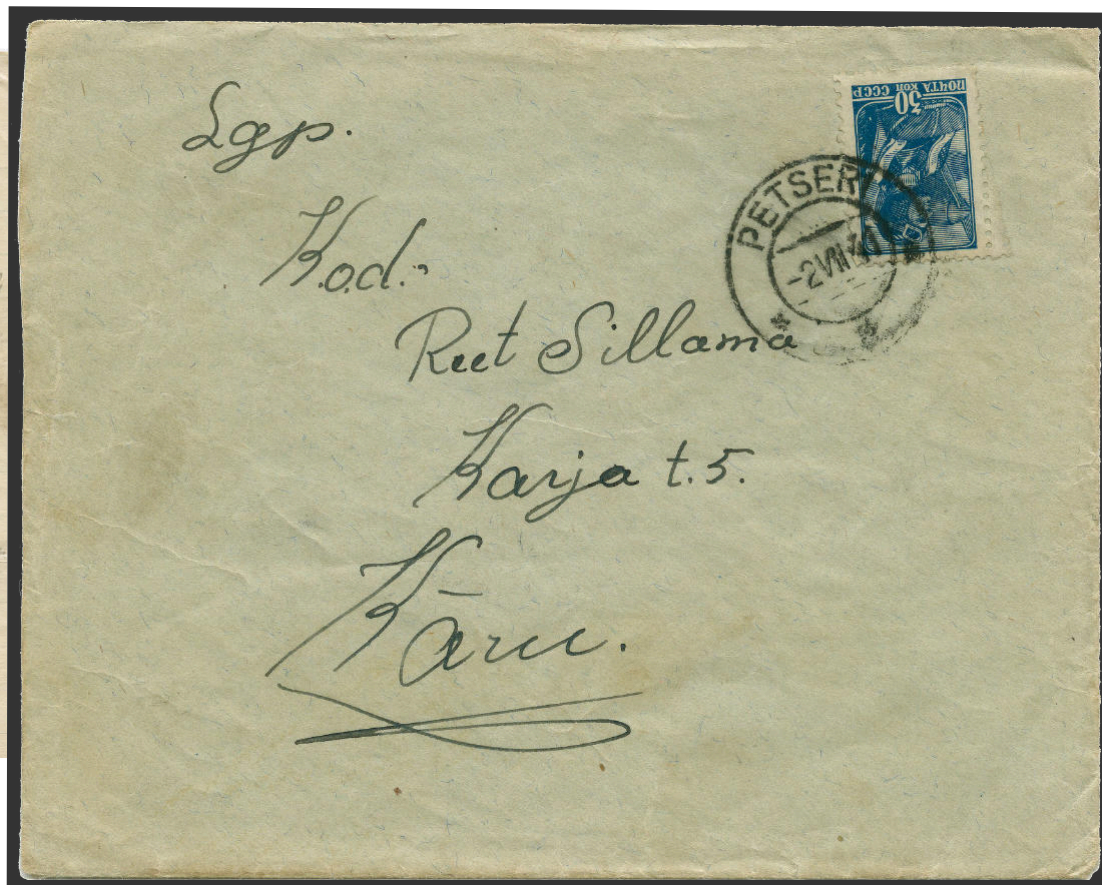 Lgp.
Kod.
Reet Sillama
Karja t. 5.
Käru.
ПОЧТА КОП СССР
30
PETSERI